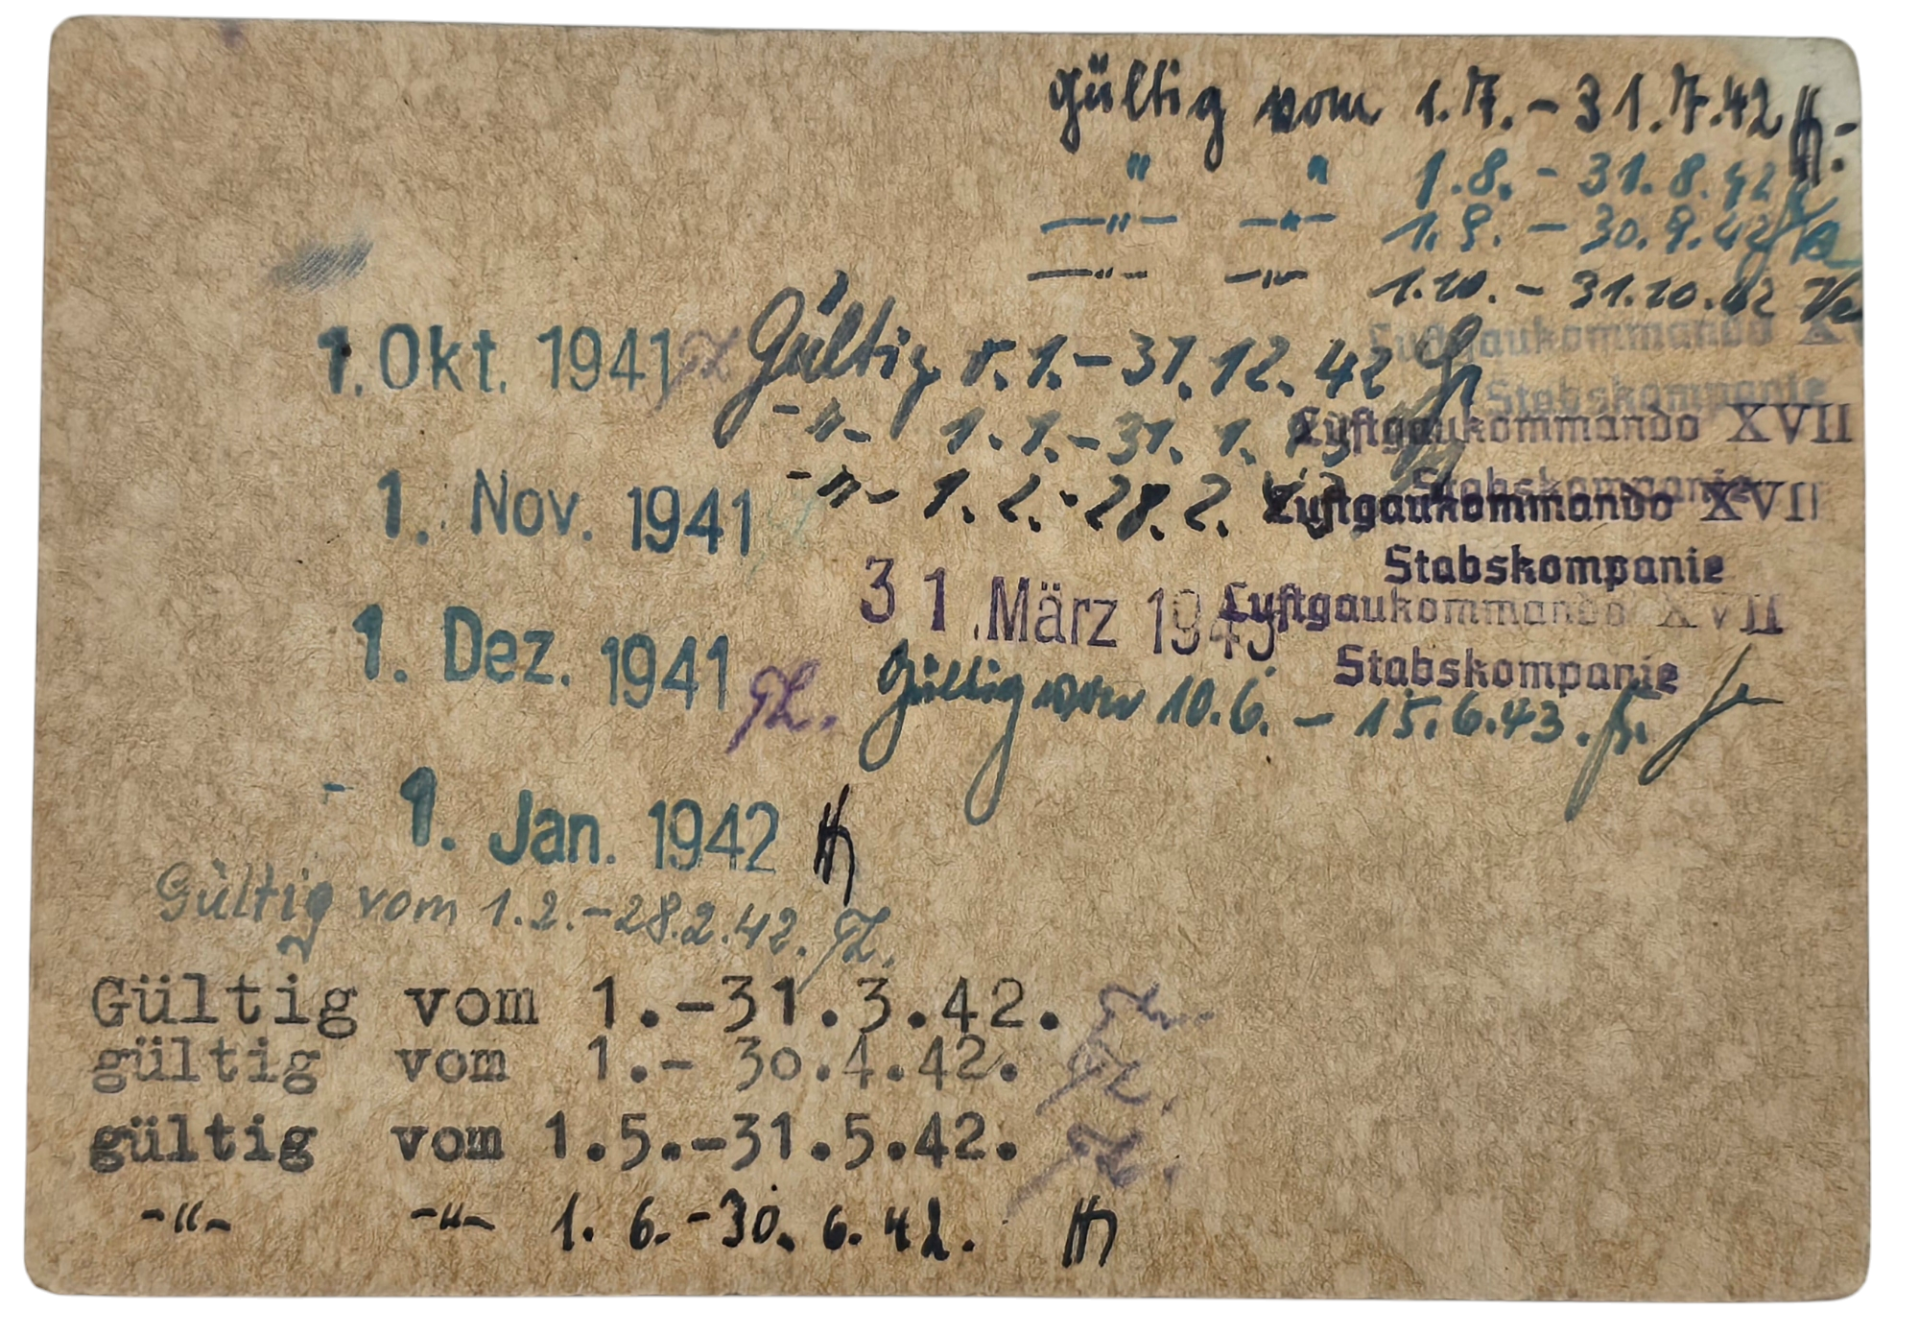 Gültig vom 1.7.-31.7.42
" " 1.8.-31.8.42
—"— —"— 1.9.-30.9.42
—"— —"— 1.10.-31.10.42
Luftgaukommando
Stabskompanie
1. Okt. 1941
Gültig v. 1.-31.12.42
-"- 1.1.-31.1.
Luftgaukommando XVII
Stabskompanie
1. Nov. 1941
-"- 1.2.-28.2.
Luftgaukommando XVII
Stabskompanie
31. März 1943
Luftgaukommando XVII
Stabskompanie
1. Dez. 1941
Gültig vom 10.6.-15.6.43.
1. Jan. 1942
Gültig vom 1.2.-28.2.42.
Gültig vom 1.-31.3.42.
gültig vom 1.- 30.4.42.
gültig vom 1.5.-31.5.42.
-"- -"- 1.6.-30.6.42.